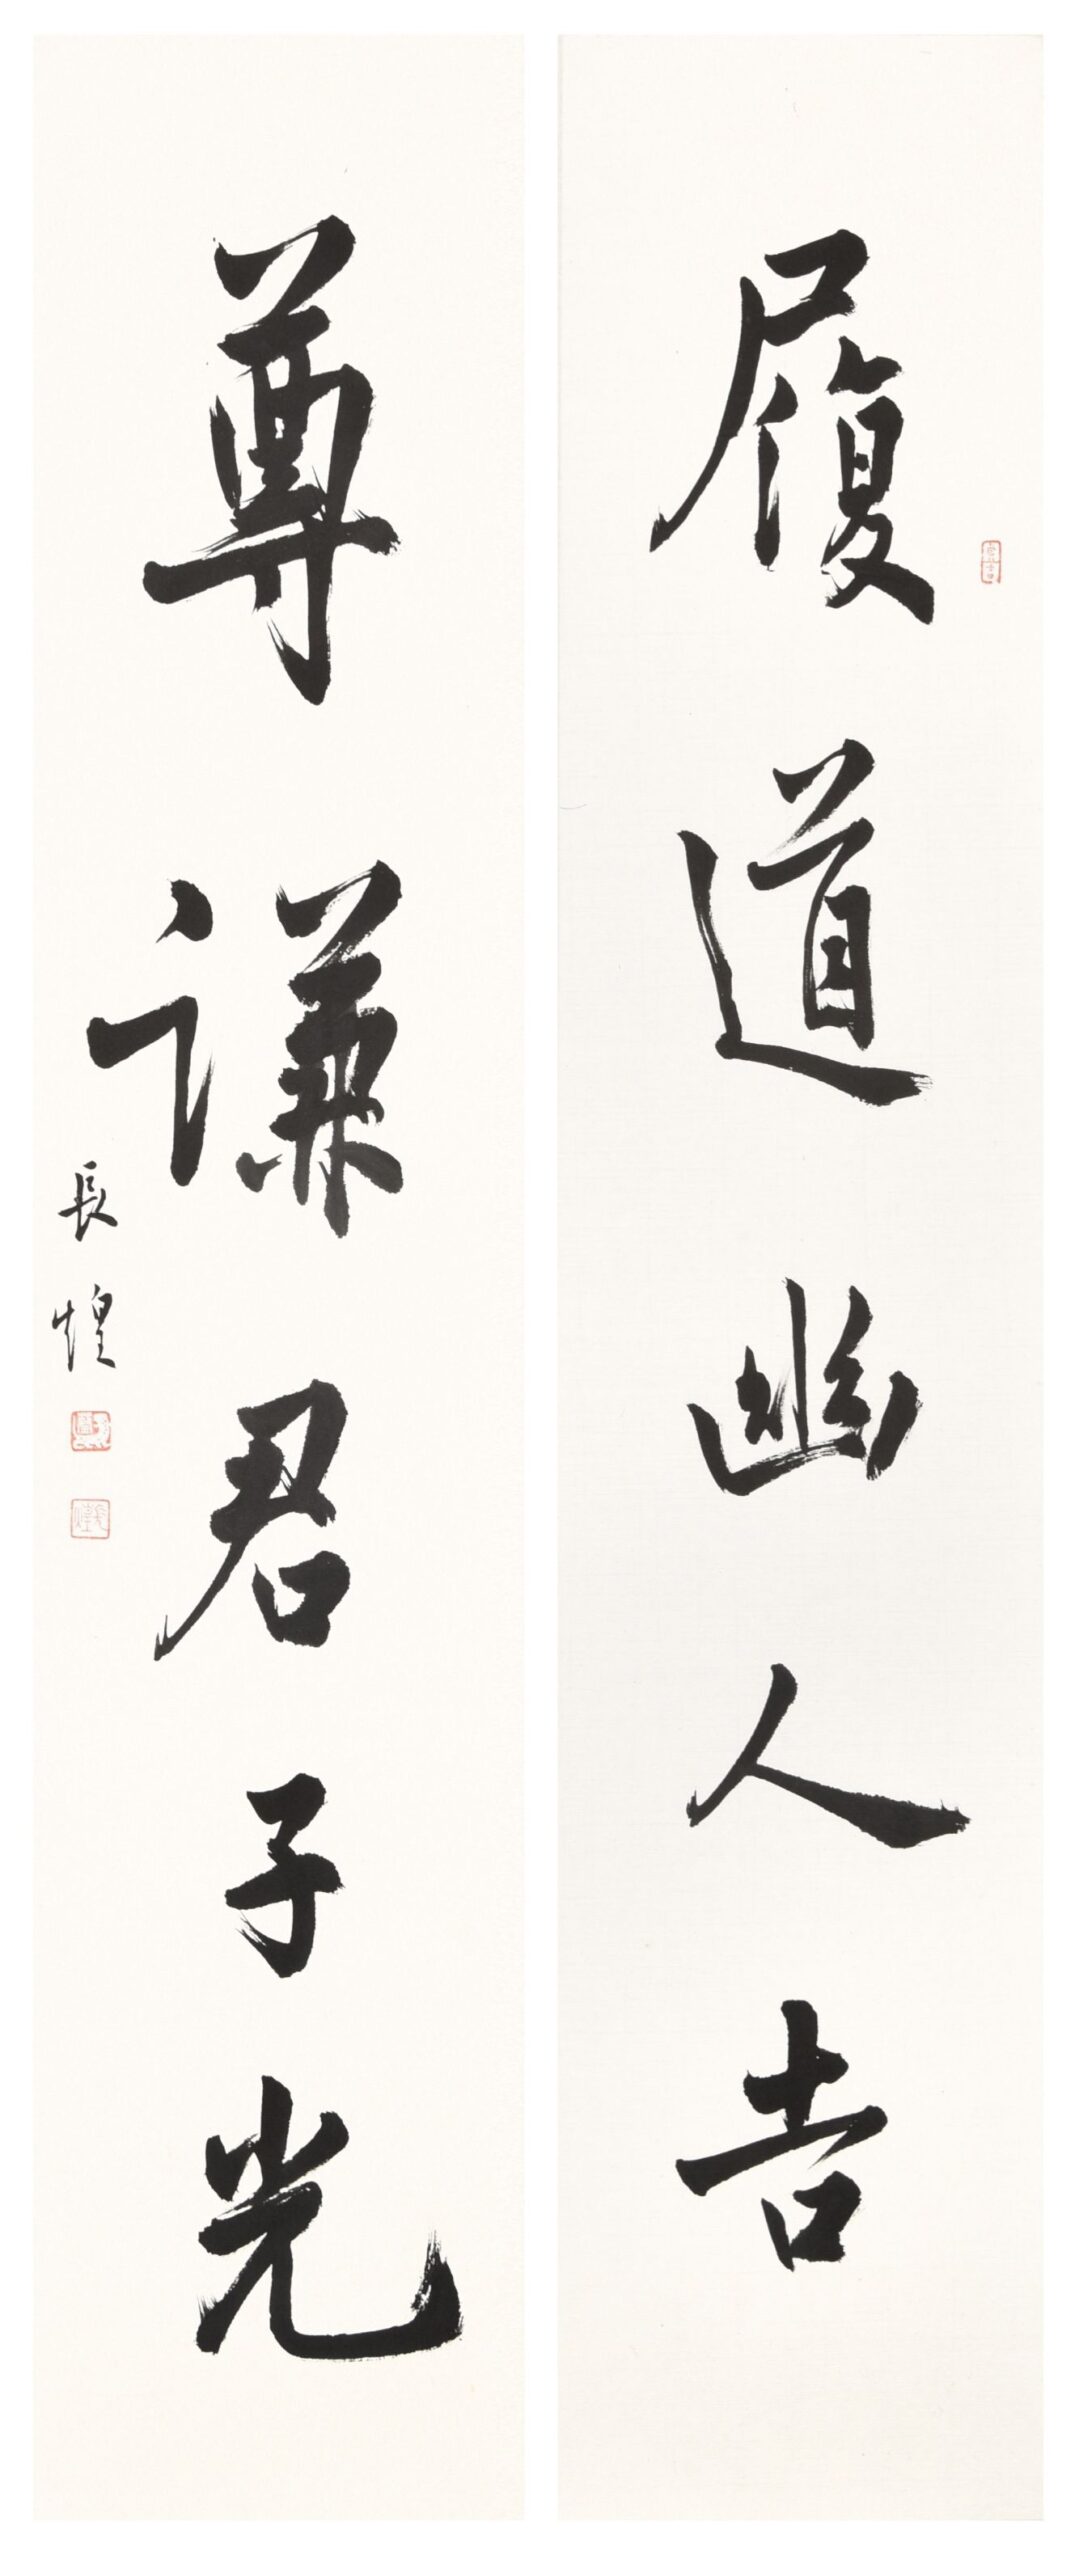 履道幽人吉
尊謙君子光
長煌